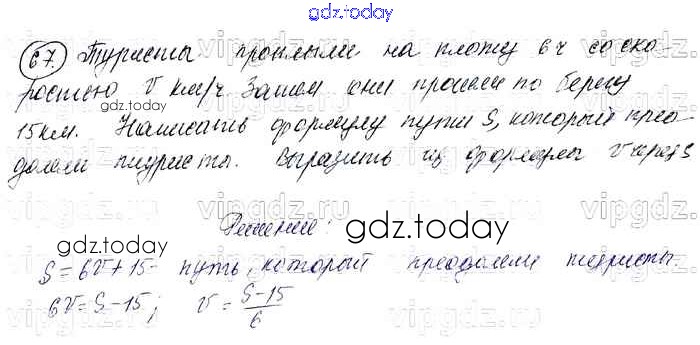 gdz.today
67. Туристы проплыли на плоту 6 ч со ско-
ростью v км/ч. Затем они прошли по берегу
15 км. Написать формулу пути S, который прео-
долели туристы. Выразить из формулы v через S
gdz.today
Решение:
gdz.today
S = 6v + 15 - путь, который преодолели туристы.
6v = S - 15; v = (S - 15)/6